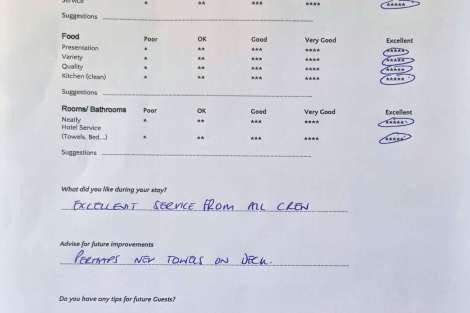 Service * ** *** **** *****
Suggestions
Food Poor OK Good Very Good Excellent
Presentation * ** *** **** *****
Variety * ** *** **** *****
Quality * ** *** **** *****
Kitchen (clean) * ** *** **** *****
Suggestions
Rooms/ Bathrooms Poor OK Good Very Good Excellent
Neatly * ** *** **** *****
Hotel Service
(Towels, Bed...) * ** *** **** *****
Suggestions
What did you like during your stay?
EXCELLENT SERVICE FROM ALL CREW
Advise for future improvements
PERHAPS NEW TOWELS ON DECK.
Do you have any tips for future Guests?